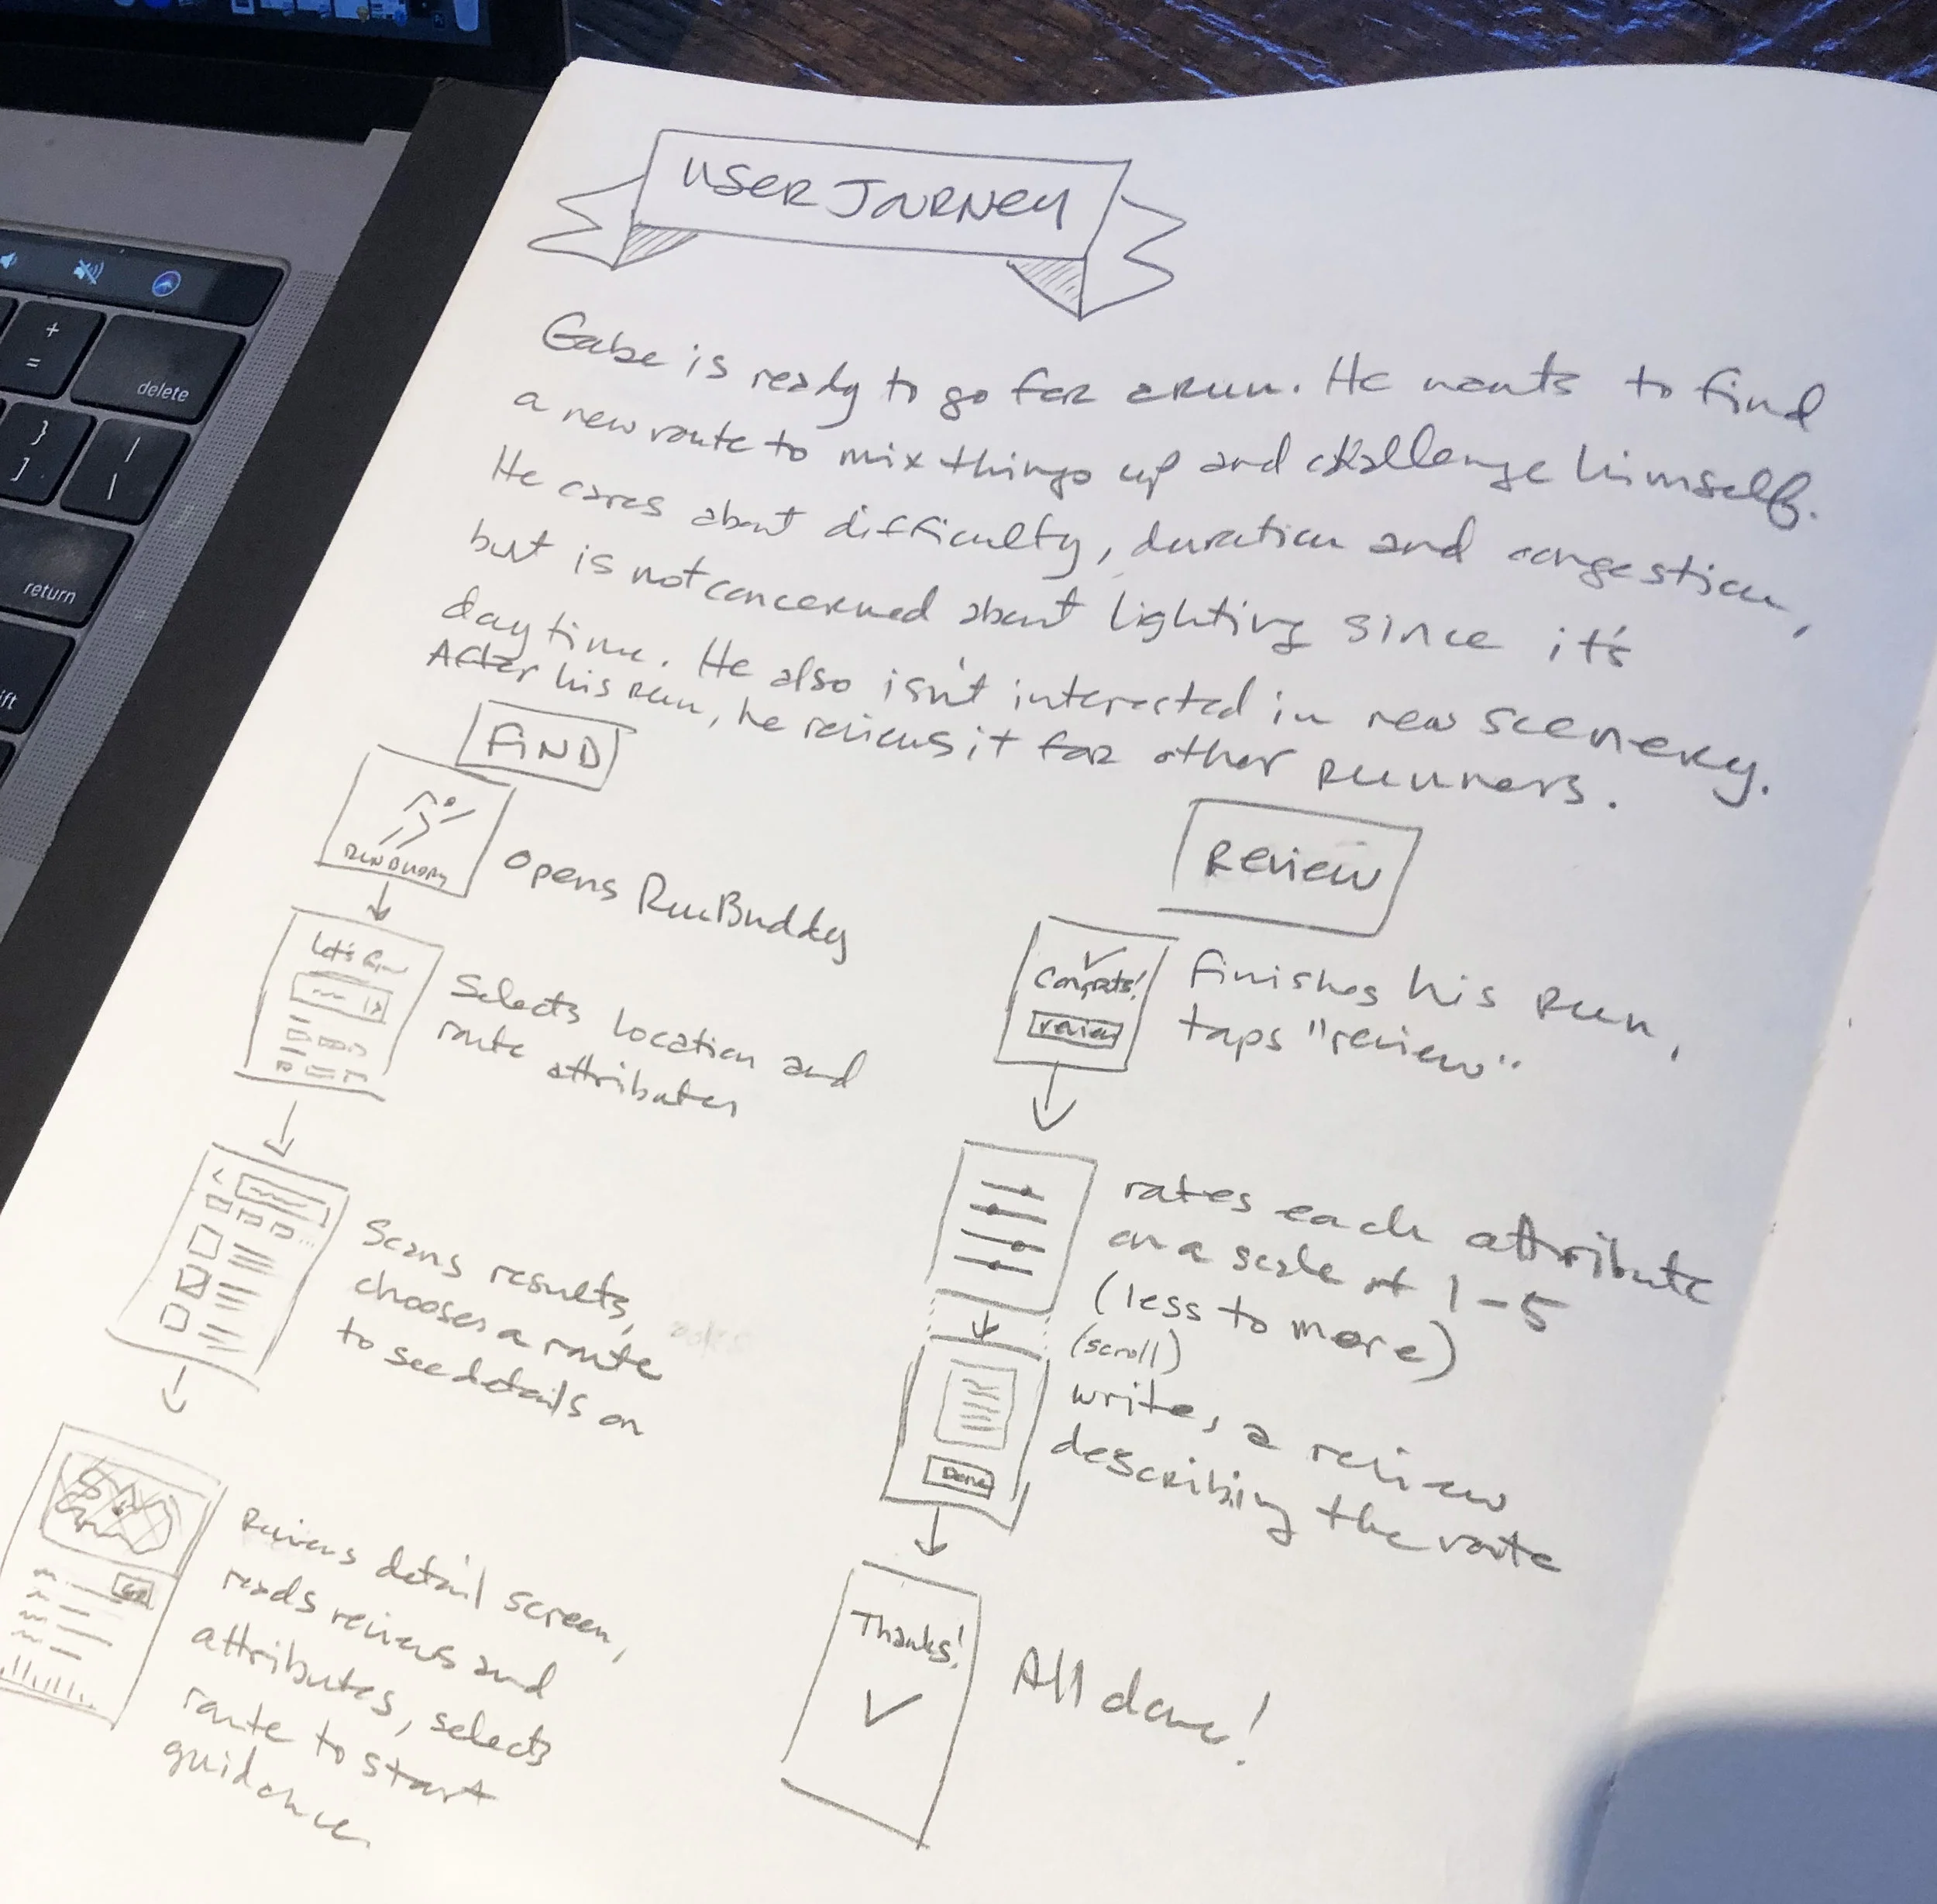 +
=
delete
}
]
|
\
return
ift
USER JOURNEY
Gabe is ready to go for a run. He wants to find
a new route to mix things up and challenge himself.
He cares about difficulty, duration and congestion,
but is not concerned about lighting since it's
daytime. He also isn't interested in new scenery.
After his run, he reviews it for other runners.
FIND
RUN BUDDY
Opens RunBuddy
Let's Run
Selects location and
route attributes
Scans results,
chooses a route
to see details on
Reviews detail screen,
reads reviews and
attributes, selects
route to start
guidance
Review
Congrats!
review
Finishes his run,
taps "review"
rates each attribute
on a scale of 1-5
(less to more)
(scroll)
writes a review
describing the route
Done
Thanks!
All done!